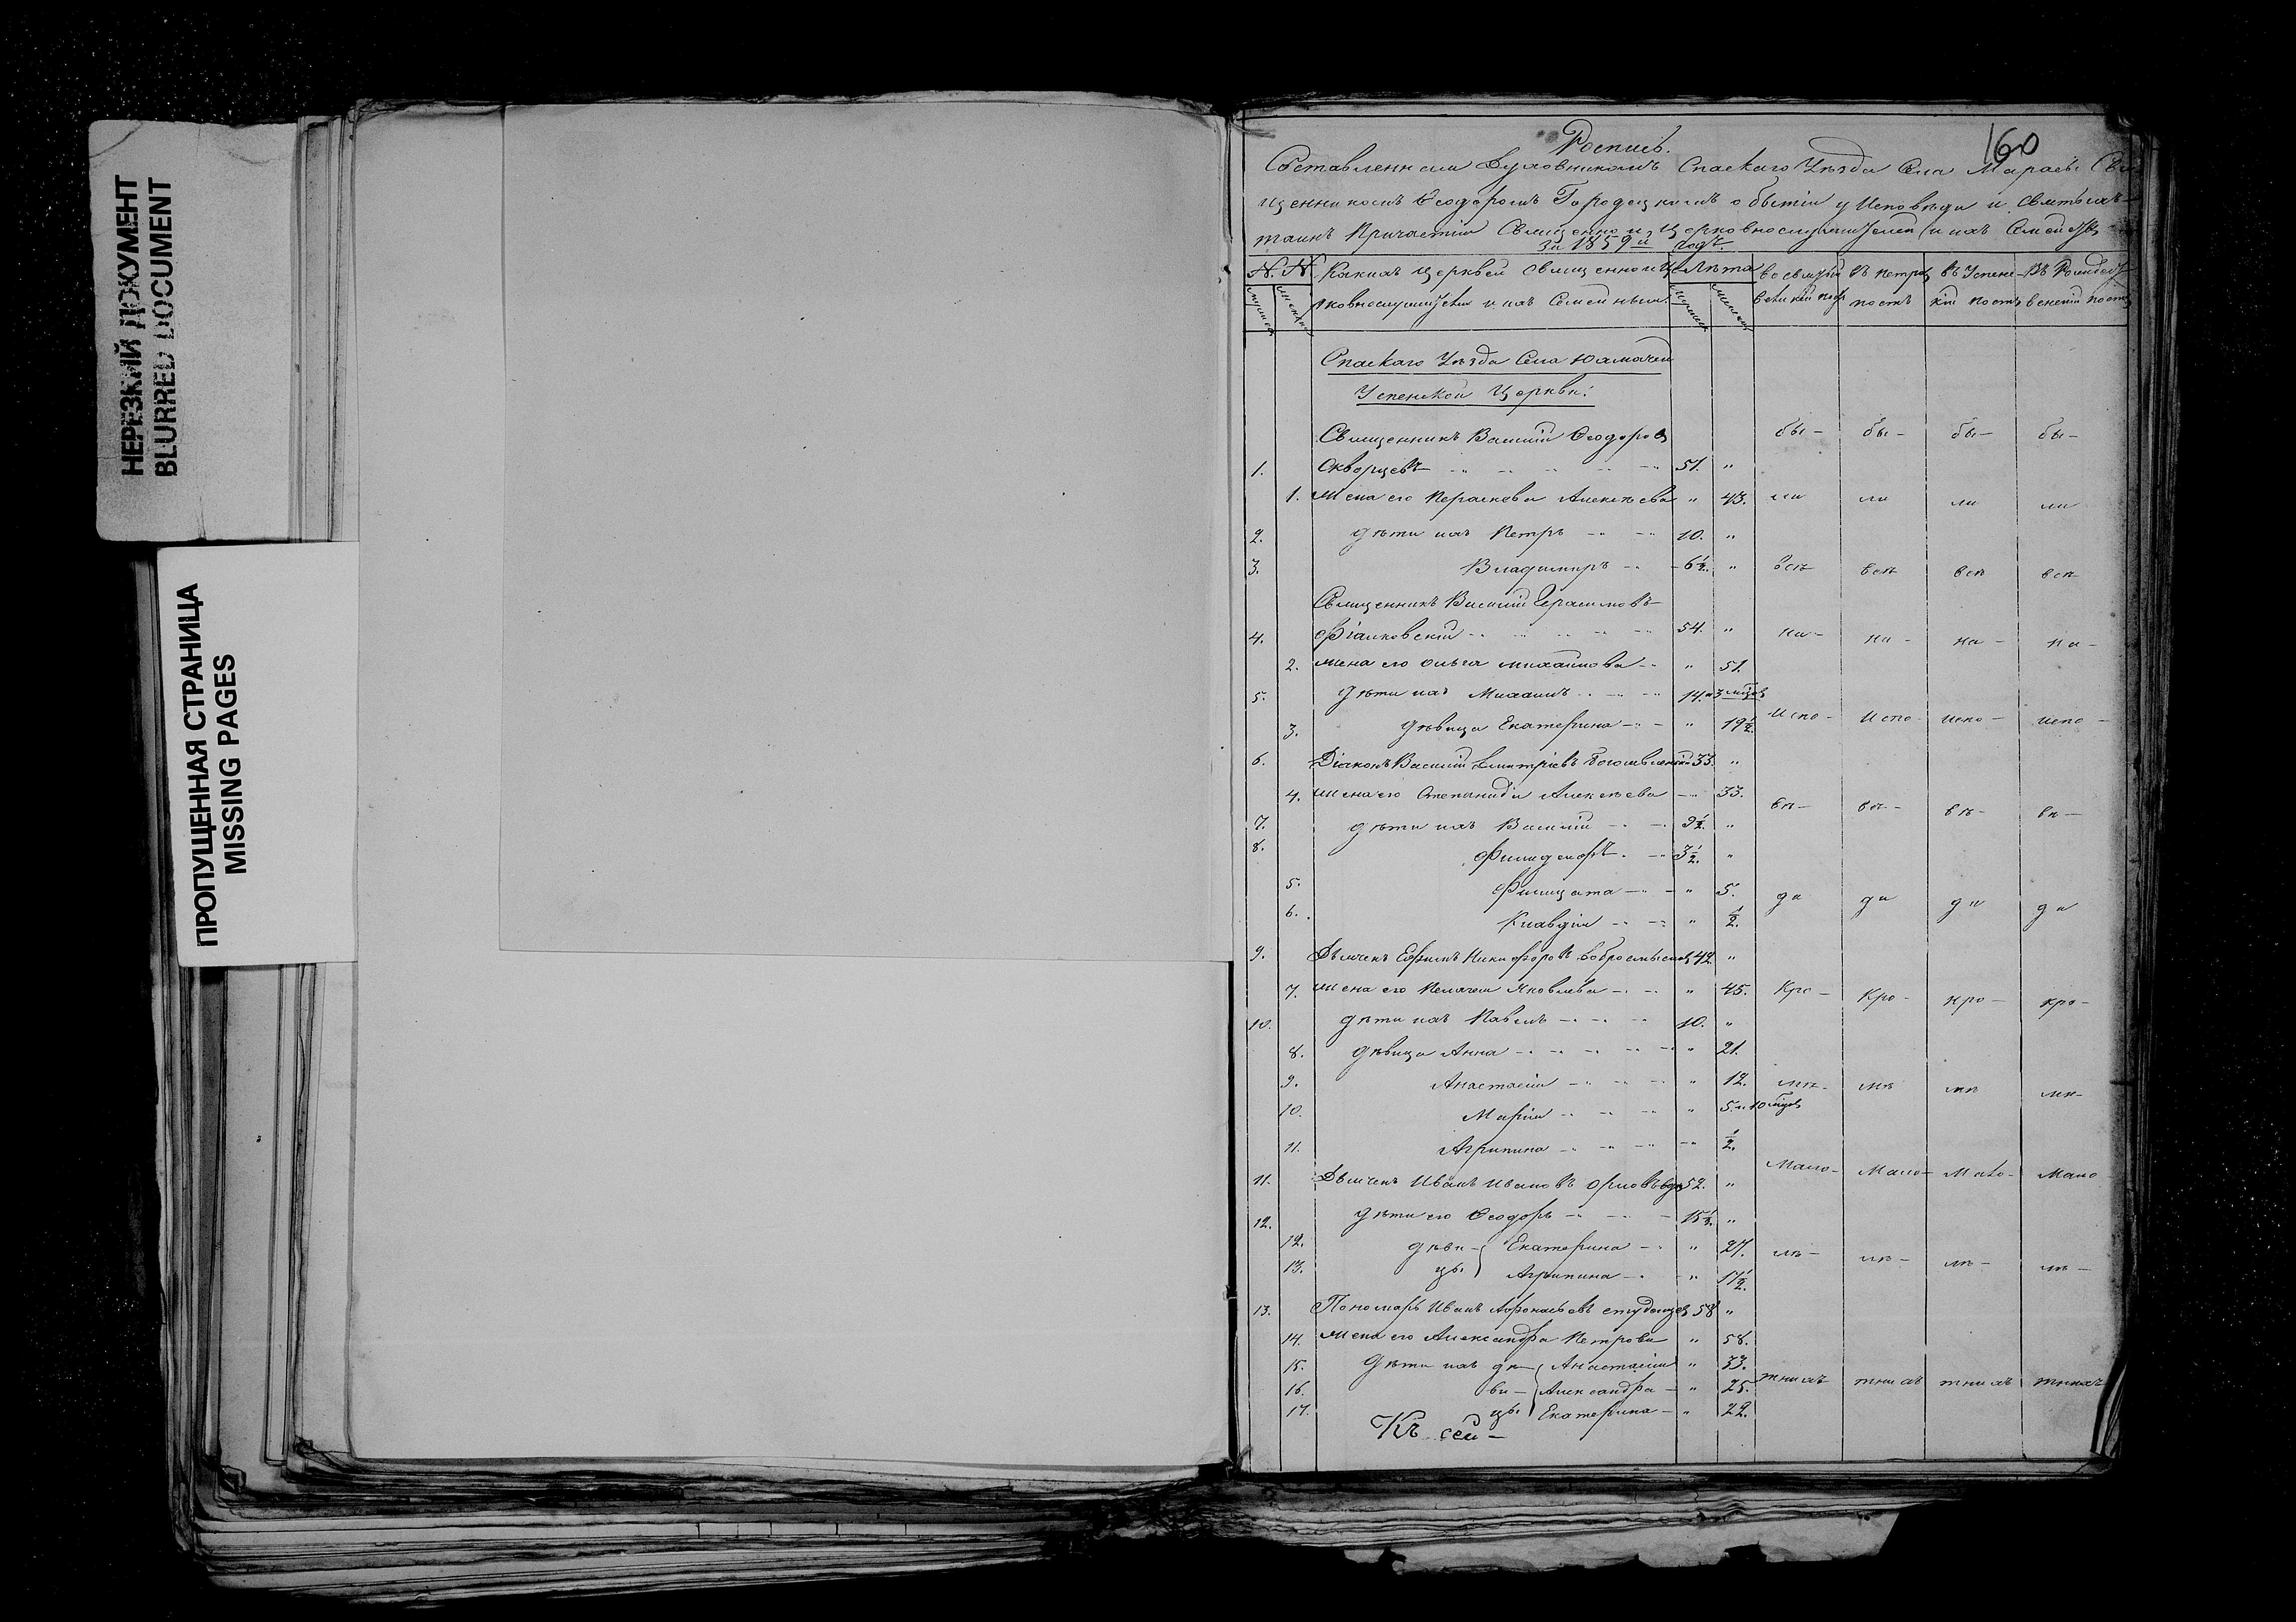 НЕРЕЗКИЙ ДОКУМЕНТ
BLURRED DOCUMENT
ПРОПУЩЕННАЯ СТРАНИЦА
MISSING PAGES
160
Роспись.
Составленная Духовникомъ Спаскаго Уѣзда Села Свя
щенникомъ Ѳеодоромъ Городецкимъ о бытіи у Исповѣди и святыхъ
таинъ Причастія Священно и церковнослужителей и ихъ Семействъ
за 1859й годъ.
N. N. Какихъ церквей священно и це Лѣта во святый въ петровъ въ Успен въ Рождест
мужска женска рковнослужители и ихъ Семейныя мужска женска великій постъ постъ кій постъ венскій постъ
Спаскаго Уѣзда Села Юхмачей
Успенской Церкви:
Священникъ Василій Ѳеодоровъ бы- бы- бы- бы-
1. Скворцевъ 51. "
1. жена его Параскева Алексѣева " 43. ли ли ли ли
2. дѣти ихъ Петръ 10. "
3. Владимиръ 6½. " всѣ всѣ всѣ всѣ
Священникъ Василій Герасимовъ
4. Фіалковскій 54. " на- на- на- на-
2. жена его Ольга Михайлова " 51.
5. дѣти ихъ Михаилъ 14. и 3 мѣсяц
3. дѣвица Екатерина " 19½. испо- испо- испо- испо-
6. Діаконъ Василій Дмитріевъ Богоявленскій 33. "
4. жена его Степанида Алексѣева " 33.
7. дѣти ихъ Василій 9½. " вѣ- вѣ- вѣ- вѣ-
8. 3½. "
5. Филицата " 5.
6. Клавдія " ½. ди ди ди ди
9. Дьячекъ Ефимъ Никифоровъ Добросмысловъ 42. "
7. жена его Пелагея Яковлева " 45. кро- кро- кро- кро-
10. дѣти ихъ Павелъ 10. "
8. дѣвица Анна " 21.
9. Анастасія " 12. мѣ- мѣ мѣ мѣ-
10. Марія " 5. и 10 мѣсяц
11. Агрипина " ½.
11. Дьячекъ Иванъ Ивановъ Орловъ вдов 52. " мало- мало- мало- мало
12. дѣти его Ѳеодоръ 15½. "
12. дѣви- Екатерина " 27. лѣ- лѣ- лѣ- лѣ-
13. цы Агрипина " 17½.
13. Пономарь Иванъ Афонасьевъ Студенцевъ 58. "
14. жена его Александра Петрова " 58.
15. дѣти ихъ дѣ- Анастасія " 33.
16. ви- Александра " 25. тнихъ тнихъ тнихъ тнихъ
17. цы Екатерина " 22.
Къ сей-